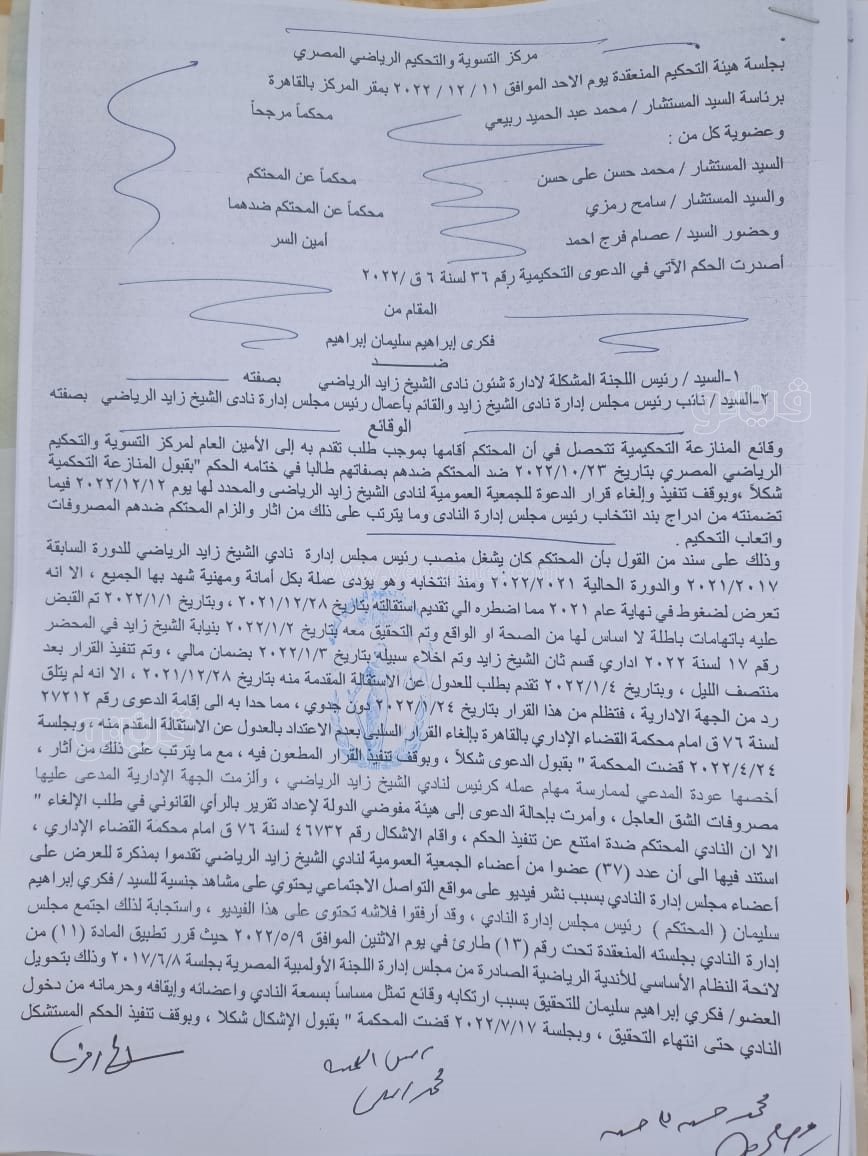 مركز التسوية والتحكيم الرياضي المصري
بجلسة هيئة التحكيم المنعقدة يوم الاحد الموافق ١١ / ١٢ / ٢٠٢٢ بمقر المركز بالقاهرة
برئاسة السيد المستشار / محمد عبد الحميد ربيعي محكماً مرجحاً
وعضوية كل من :
السيد المستشار / محمد حسن على حسن محكماً عن المحتكم
والسيد المستشار / سامح رمزي محكماً عن المحتكم ضدهما
وحضور السيد / عصام فرج احمد أمين السر
أصدرت الحكم الآتي في الدعوى التحكيمية رقم ٣٦ لسنة ٦ ق /٢٠٢٢
المقام من
فكرى إبراهيم سليمان إبراهيم
ضــــــد
١-السيد / رئيس اللجنة المشكلة لادارة شئون نادى الشيخ زايد الرياضي بصفته
٢-السيد / نائب رئيس مجلس إدارة نادى الشيخ زايد والقائم بأعمال رئيس مجلس إدارة نادى الشيخ زايد الرياضي بصفته
الوقائع
وقائع المنازعة التحكيمية تتحصل في أن المحتكم أقامها بموجب طلب تقدم به إلى الأمين العام لمركز التسوية والتحكيم
الرياضي المصري بتاريخ ٢٠٢٢/١٠/٢٣ ضد المحتكم ضدهم بصفاتهم طالبا في ختامه الحكم "بقبول المنازعة التحكمية
شكلاً ،وبوقف تنفيذ وإلغاء قرار الدعوة للجمعية العمومية لنادى الشيخ زايد الرياضى والمحدد لها يوم ٢٠٢٢/١٢/١٢ فيما
تضمنته من ادراج بند انتخاب رئيس مجلس إدارة النادى وما يترتب على ذلك من اثار والزام المحتكم ضدهم المصروفات
واتعاب التحكيم .
وذلك على سند من القول بأن المحتكم كان يشغل منصب رئيس مجلس إدارة نادي الشيخ زايد الرياضي للدورة السابقة
٢٠٢١/٢٠١٧ والدورة الحالية ٢٠٢٢/٢٠٢١ ومنذ انتخابه وهو يؤدى عملة بكل أمانة ومهنية شهد بها الجميع ، الا انه
تعرض لضغوط في نهاية عام ٢٠٢١ مما اضطره الي تقديم استقالته بتاريخ ٢٠٢١/١٢/٢٨ ، وبتاريخ ٢٠٢٢/١/١ تم القبض
عليه باتهامات باطلة لا اساس لها من الصحة او الواقع وتم التحقيق معه بتاريخ ٢٠٢٢/١/٢ بنيابة الشيخ زايد في المحضر
رقم ١٧ لسنة ٢٠٢٢ اداري قسم ثان الشيخ زايد وتم اخلاء سبيله بتاريخ ٢٠٢٢/١/٣ بضمان مالي ، وتم تنفيذ القرار بعد
منتصف الليل ، وبتاريخ ٢٠٢٢/١/٤ تقدم بطلب للعدول عن الاستقالة المقدمة منه بتاريخ ٢٠٢١/١٢/٢٨ ، الا انه لم يتلق
رد من الجهة الادارية ، فتظلم من هذا القرار بتاريخ ٢٠٢٢/١/٢٤ دون جدوي ، مما حدا به الى إقامة الدعوى رقم ٢٧٢١٢
لسنة ٧٦ ق امام محكمة القضاء الإداري بالقاهرة بإلغاء القرار السلبى بعدم الاعتداد بالعدول عن الاستقالة المقدم منه ، وبجلسة
٢٠٢٢/٤/٢٤ قضت المحكمة " بقبول الدعوى شكلاً ، وبوقف تنفيذ القرار المطعون فيه ، مع ما يترتب على ذلك من أثار ،
أخصها عودة المدعي لممارسة مهام عمله كرئيس لنادي الشيخ زايد الرياضي ، وألزمت الجهة الإدارية المدعى عليها
مصروفات الشق العاجل ، وأمرت بإحالة الدعوى إلى هيئة مفوضي الدولة لإعداد تقرير بالرأي القانوني في طلب الإلغاء "
الا ان النادي المحتكم ضدة امتنع عن تنفيذ الحكم ، واقام الاشكال رقم ٤٦٧٣٢ لسنة ٧٦ ق امام محكمة القضاء الإداري ،
استند فيها الى أن عدد (٣٧) عضوا من أعضاء الجمعية العمومية لنادي الشيخ زايد الرياضي تقدموا بمذكرة للعرض على
أعضاء مجلس إدارة النادي بسبب نشر فيديو على مواقع التواصل الاجتماعي يحتوي على مشاهد جنسية للسيد / فكري إبراهيم
سليمان ( المحتكم ) رئيس مجلس إدارة النادي ، وقد أرفقوا فلاشه تحتوى على هذا الفيديو ، واستجابة لذلك اجتمع مجلس
إدارة النادي بجلسته المنعقدة تحت رقم (١٣) طارئ في يوم الاثنين الموافق ٢٠٢٢/٥/٩ حيث قرر تطبيق المادة (١١) من
لائحة النظام الأساسي للأندية الرياضية الصادرة من مجلس إدارة اللجنة الأولمبية المصرية بجلسة ٢٠١٧/٦/٨ وذلك بتحويل
العضو/ فكري إبراهيم سليمان للتحقيق بسبب ارتكابه وقائع تمثل مساساً بسمعة النادي واعضائه وإيقافه وحرمانه من دخول
النادي حتى انتهاء التحقيق ، وبجلسة ٢٠٢٢/٧/١٧ قضت المحكمة " بقبول الإشكال شكلا ، وبوقف تنفيذ الحكم المستشكل
محمد حسن على حسن